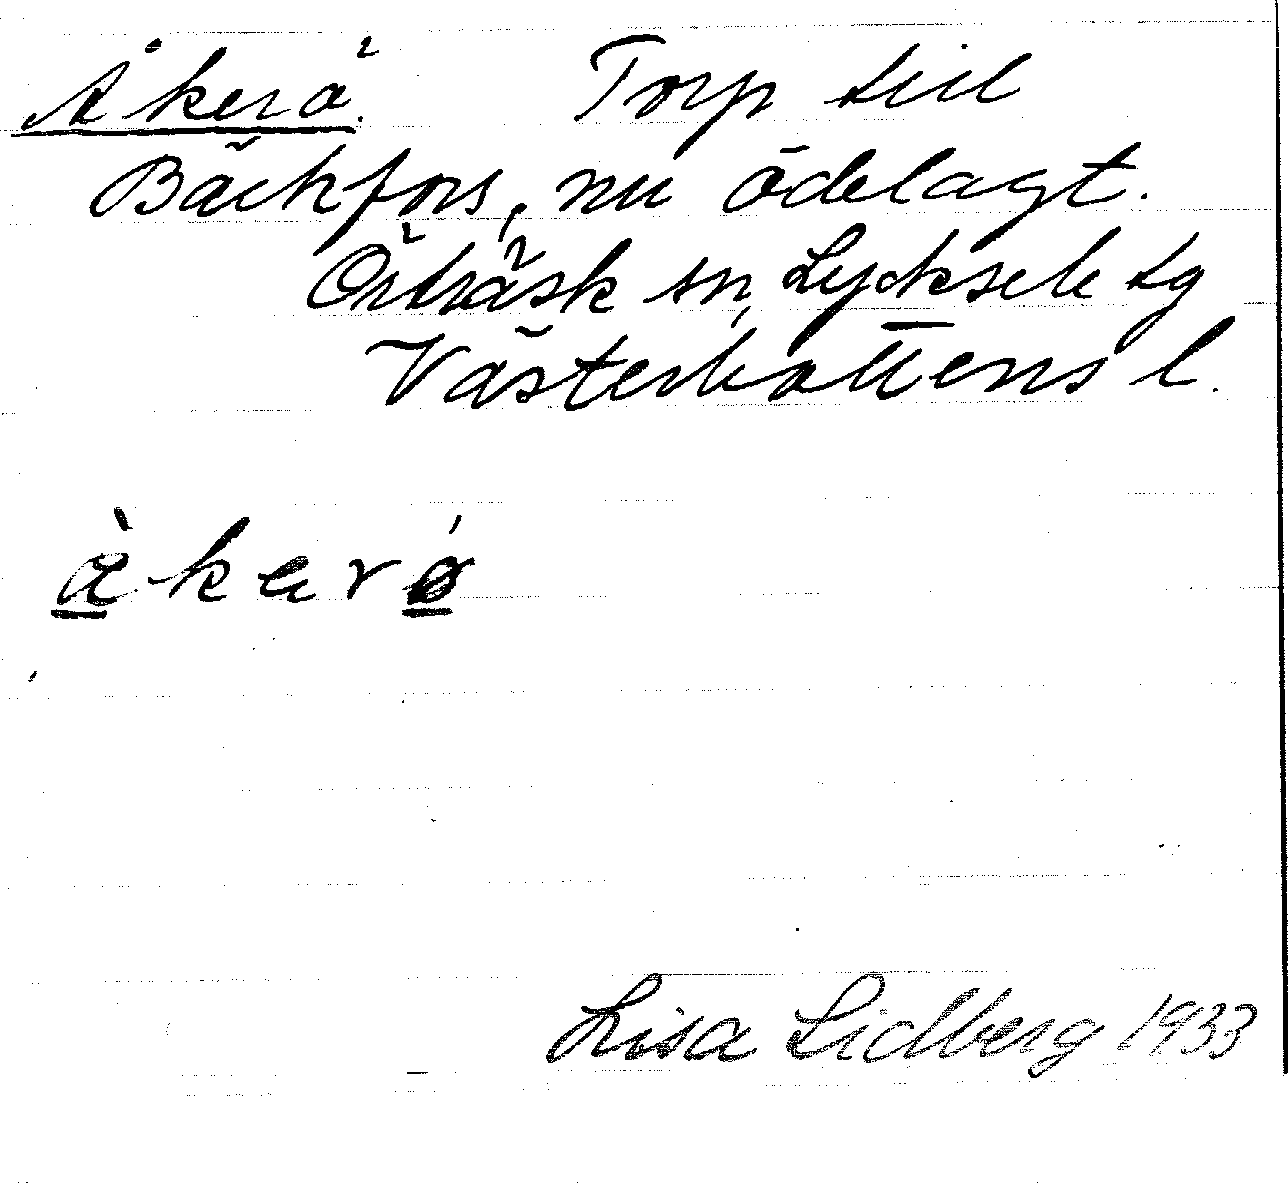 Åkerö. Torp till
Bäckfors, nu ödelagt.
Örträsk sn, Lycksele tg
Västerbottens l.
àkerǿ
Lisa Lidberg 1933